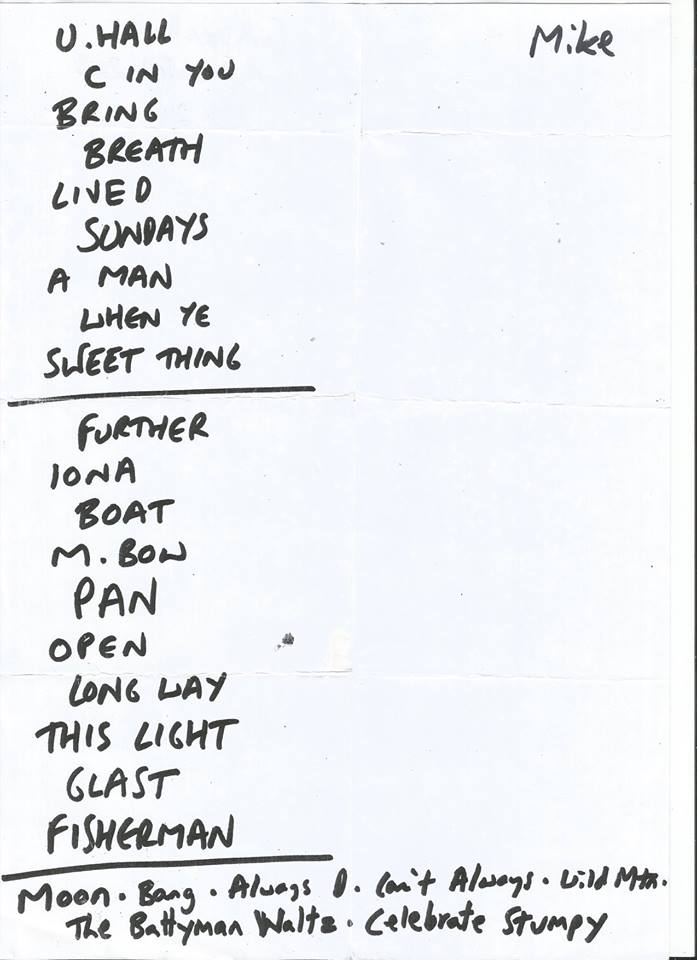 U. HALL
Mike
C IN YOU
BRING
BREATH
LIVED
SUNDAYS
A MAN
WHEN YE
SWEET THING
FURTHER
IONA
BOAT
M. BOW
PAN
OPEN
LONG WAY
THIS LIGHT
GLAST
FISHERMAN
Moon · Bang · Always D. Can't Always · Wild Mtn.
The Battyman Waltz · Celebrate Stumpy